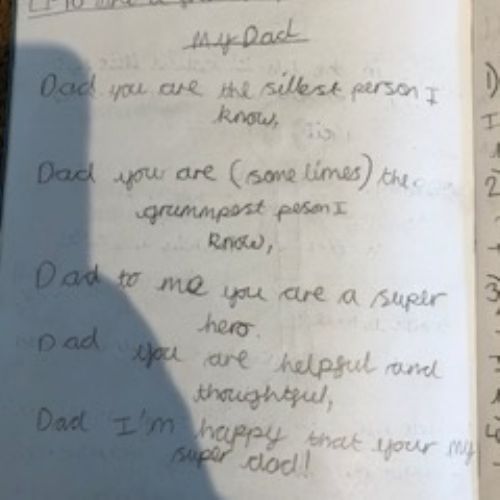 My Dad
Dad you are the sillest person I
know,
Dad you are (some times) the
grummpest peson I
know,
Dad to me you are a super
hero.
Dad you are helpful and
thoughtful,
Dad I'm happy that your my
super dad!
1)
I
2
3
4